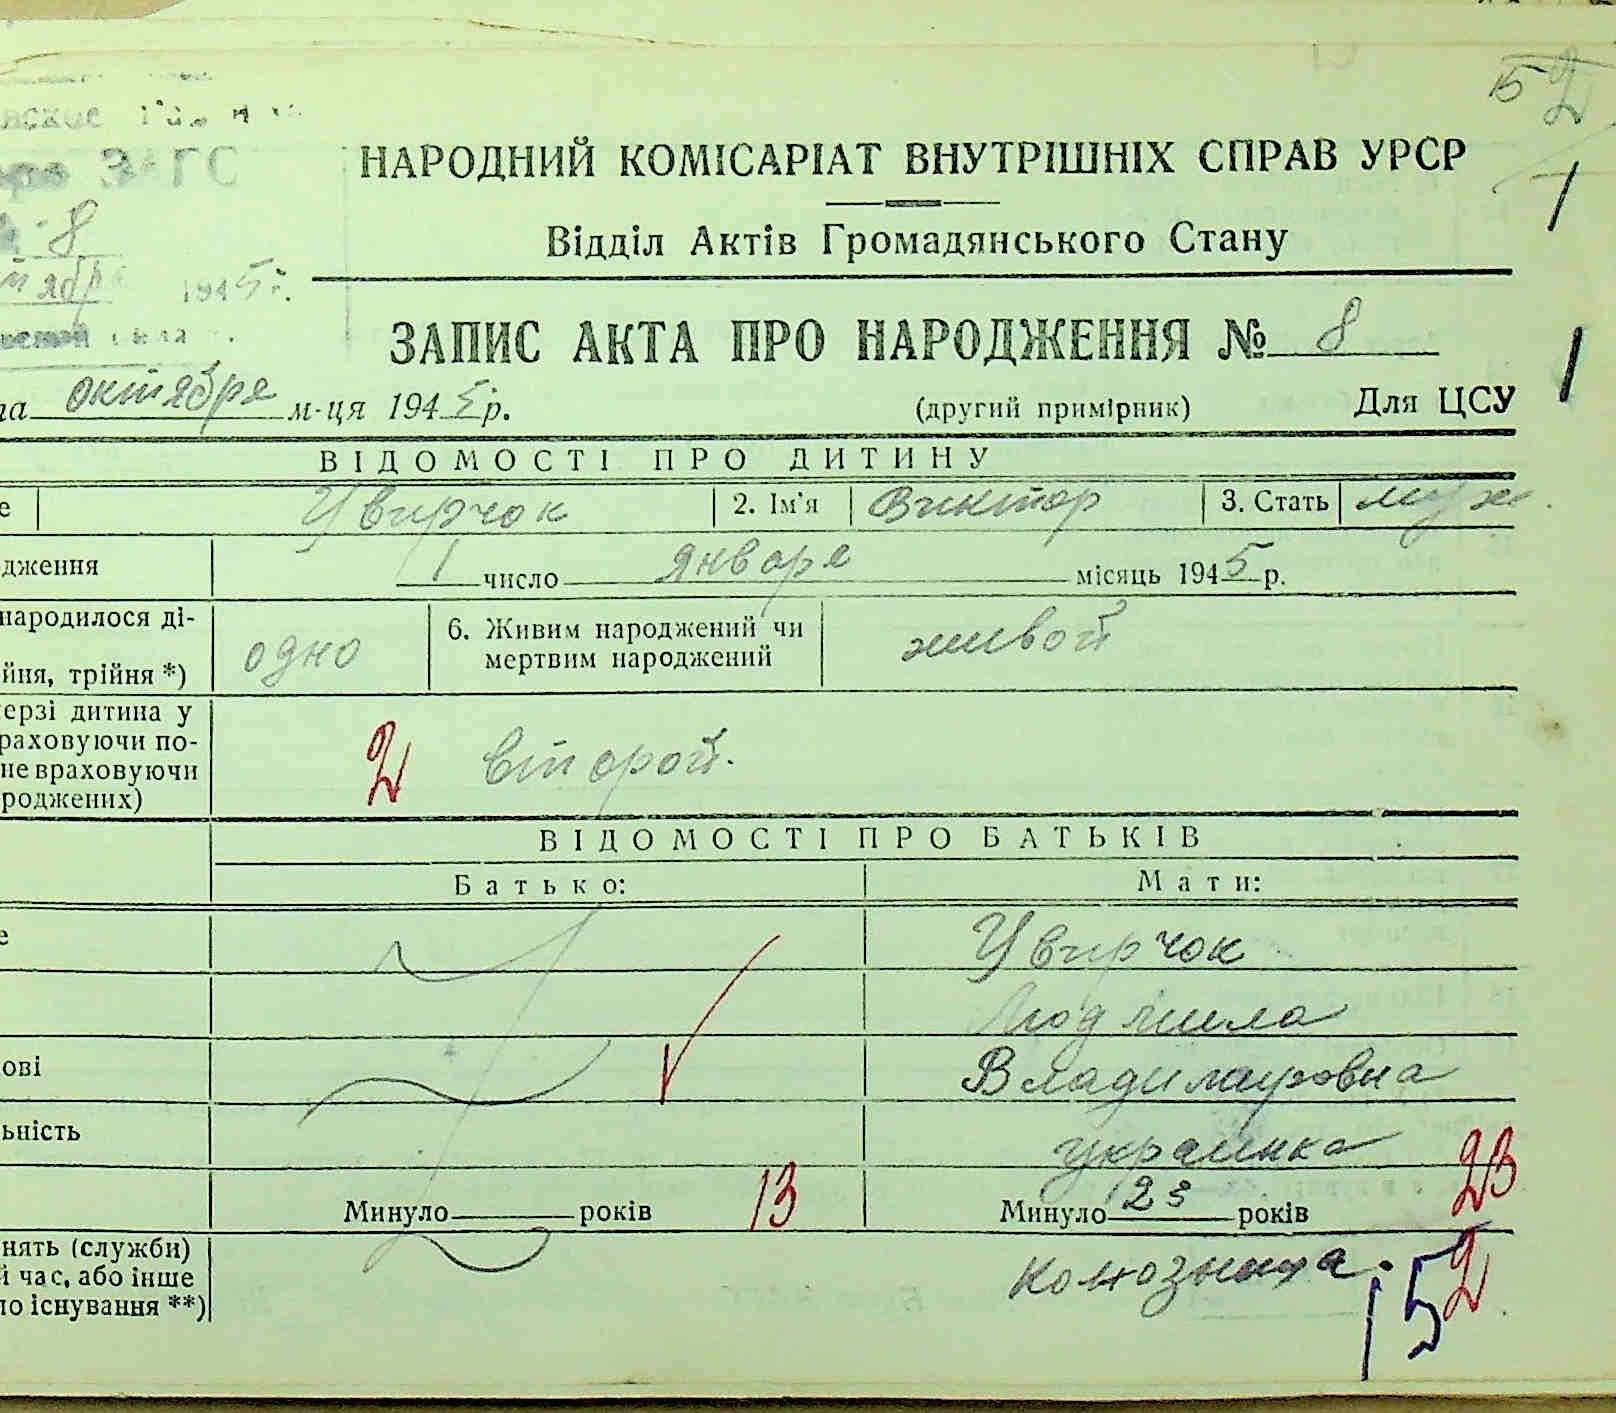 15 2
НАРОДНИЙ КОМІСАРІАТ ВНУТРІШНІХ СПРАВ УРСР
ЗАГС
Відділ Актів Громадянського Стану
8
тября 1945 г.
ЗАПИС АКТА ПРО НАРОДЖЕННЯ № 8
та октября м-ця 1945 р.
(другий примірник) Для ЦСУ
ВІДОМОСТІ ПРО ДИТИНУ
е Увирчок 2. Ім'я Виктор 3. Стать муж.
дження 1 число января місяць 1945 р.
народилося ді-
йня, трійня *) одно 6. Живим народжений чи
мертвим народжений живой
ерзі дитина у
раховуючи по-
не враховуючи
роджених) 2 второй.
ВІДОМОСТІ ПРО БАТЬКІВ
Батько: Мати:
е Увирчок
Людмила
ові Владимировна
ьність украинка
Минуло років 13 Минуло 23 років 23
нять (служби)
й час, або інше
ло існування **) колхозница. 2
15